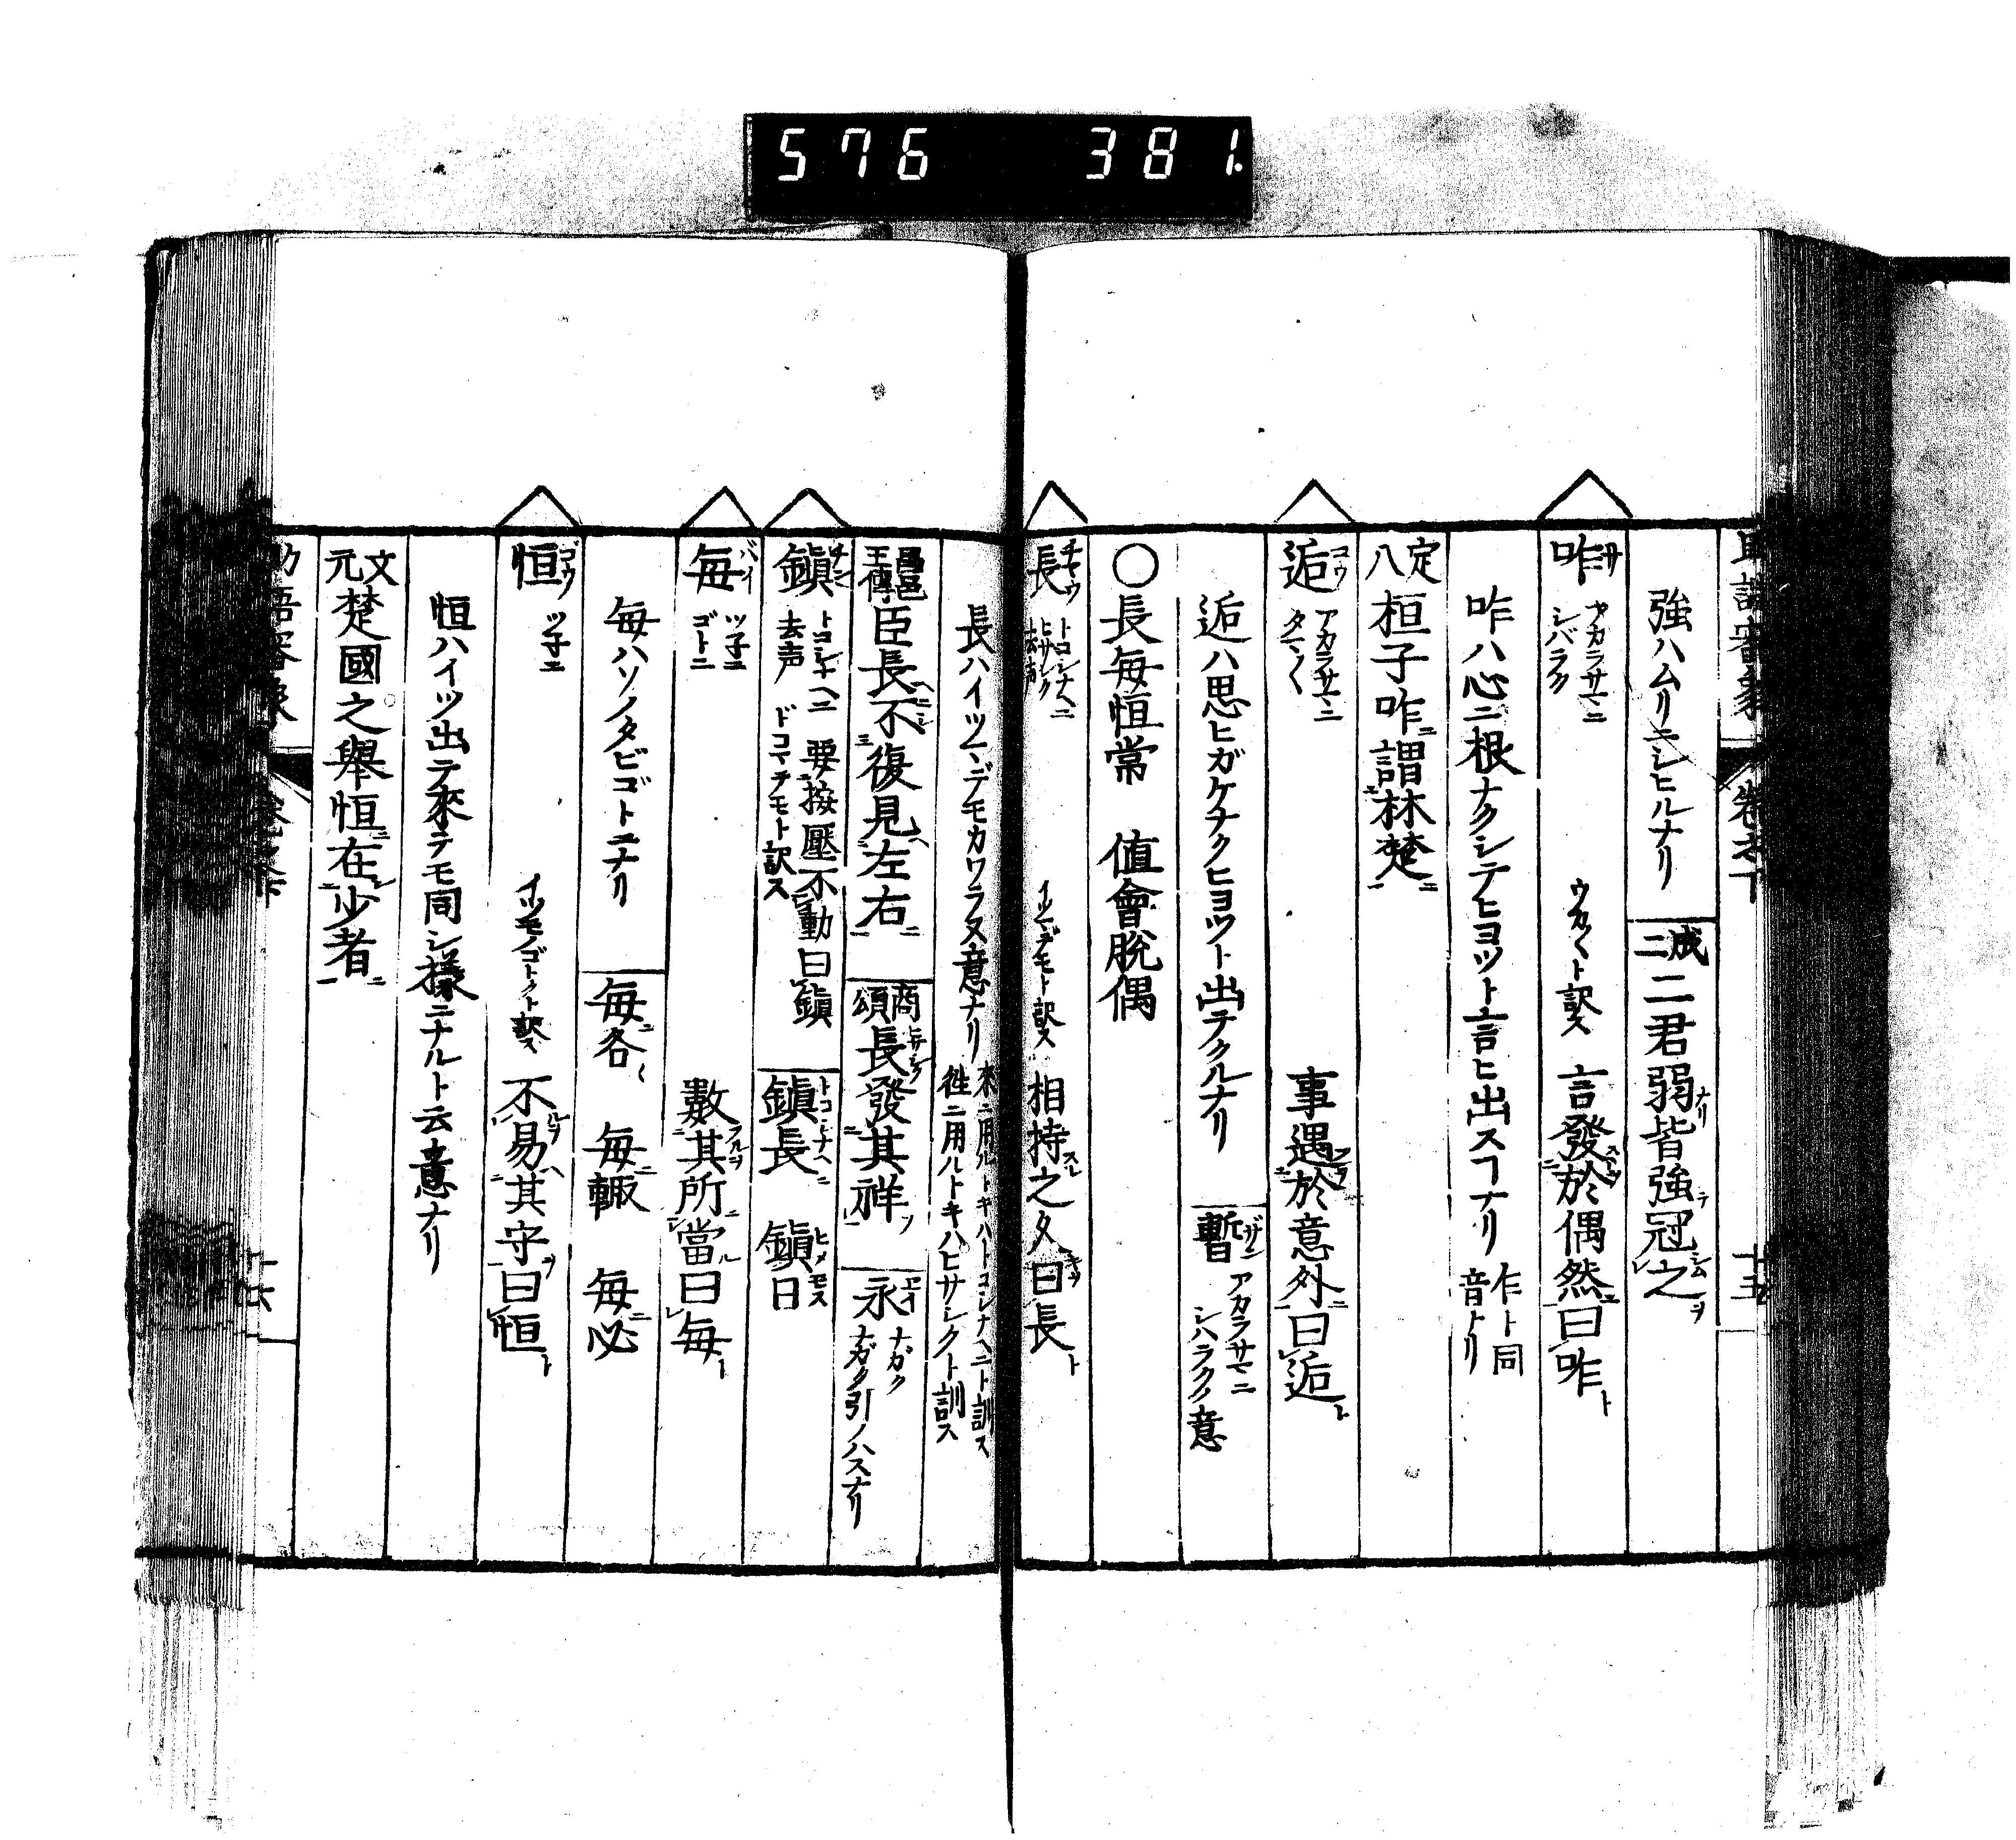 576 381
強ハムリニシヒルナリ 成二 二君弱皆強冠之
咋 アカラサマニ シバラク ウカ〳〵ト訳ス 言發於偶然曰咋
咋ハ心ニ根ナクシテヒヨツト言ヒ出スヿナリ 乍ト同音トリ
定八 桓子咋謂林楚
逅 コウ アカラサマニ タマ〳〵 事遇於意外曰逅
逅ハ思ヒガケナクヒヨツト出テクルナリ 暫 ザン アカラサマニ シハラクノ意
○長每恒常 值會脫偶
長 チヤウ トコシナヘニ ヒサシク 去声 イツマデモト訳ス 相持之久曰長
長ハイツマデモカワラヌ意ナリ 來ニ用ルトキハトコシナヘニト訓ス 徃ニ用ルトキハヒサシクト訓ス
昌邑王傳 臣長不復見左右 商頌 長發其祥 永 エイ ナガク ナガク引ノハスナリ
鎭 チン トコシナヘニ 去声 要按壓不動曰鎭 ドコマデモト訳ス 鎭長 トコシナヘニ 鎭日 ヒメモス
每 バイ ツ子ニ ゴトニ 數其所當曰每
每ハソノタビゴトニナリ 每各 每輙 每必
恒 コウ ツ子ニ イツモノゴトクト訳ス 不易其守曰恒
恒ハイツ出テ來テモ同シ樣ニナルト云意ナリ
文元 楚國之舉恒在少者